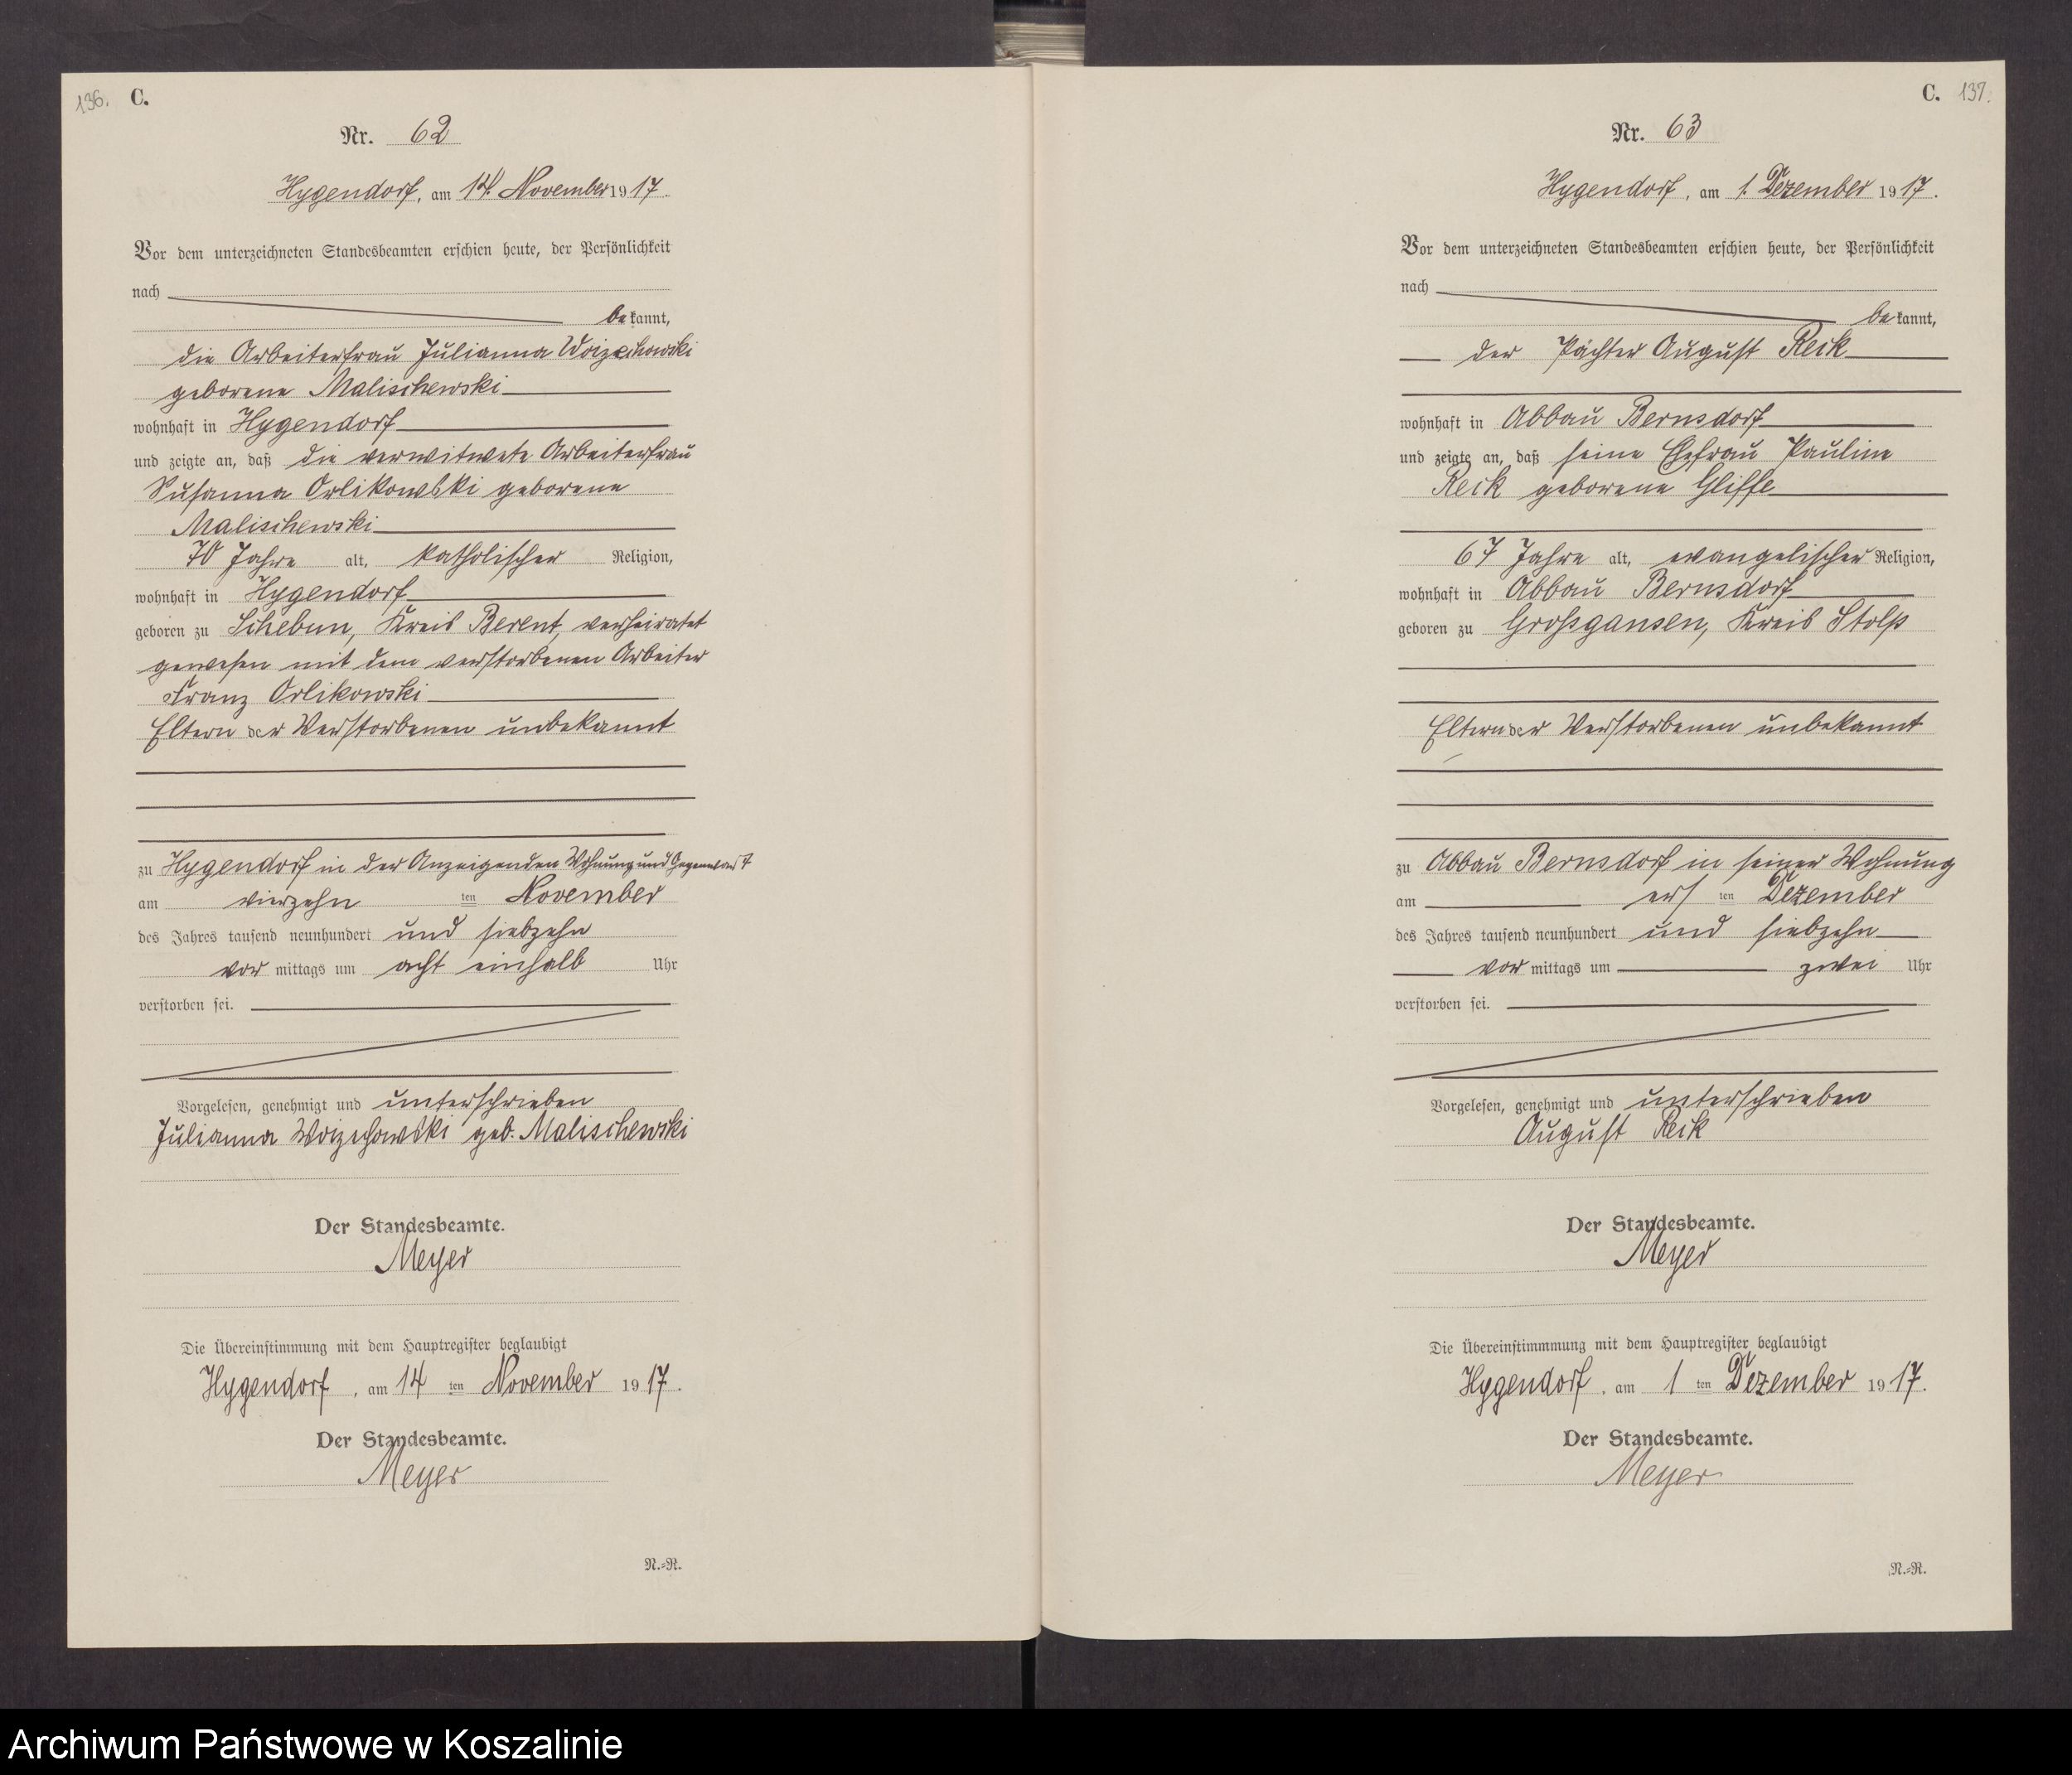 136. C.
Nr. 62
Hygendorf, am 14. November 1917.
Vor dem unterzeichneten Standesbeamten erschien heute, der Persönlichkeit
nach
bekannt,
die Arbeiterfrau Julianna Woizechowski
geborene Malischewski
wohnhaft in Hygendorf
und zeigte an, daß die verwitwete Arbeiterfrau
Susanna Orlikowski geborene
Malischewski
70 Jahre alt, katholischer Religion,
wohnhaft in Hygendorf
geboren zu Schebun, Kreis Berent, verheiratet
gewesen mit dem verstorbenen Arbeiter
Franz Orlikowski
Eltern der Verstorbenen unbekannt
zu Hygendorf in der Anzeigenden Wohnung und Gegenwart
am vierzehn ten November
des Jahres tausend neunhundert und siebzehn
vor mittags um acht einhalb Uhr
verstorben sei.
Vorgelesen, genehmigt und unterschrieben
Julianna Woizechowski geb. Malischewski
Der Standesbeamte.
Meyer
Die Übereinstimmung mit dem Hauptregister beglaubigt
Hygendorf, am 14 ten November 1917.
Der Standesbeamte.
Meyer
N.=R.
C. 137.
Nr. 63
Hygendorf, am 1. Dezember 1917.
Vor dem unterzeichneten Standesbeamten erschien heute, der Persönlichkeit
nach
bekannt,
der Pächter August Reik
wohnhaft in Abbau Bernsdorf
und zeigte an, daß seine Ehefrau Pauline
Reik geborene Gliffe
67 Jahre alt, evangelischer Religion,
wohnhaft in Abbau Bernsdorf
geboren zu Großgansen, Kreis Stolp
Eltern der Verstorbenen unbekannt
zu Abbau Bernsdorf in seiner Wohnung
am ers ten Dezember
des Jahres tausend neunhundert und siebzehn
vor mittags um zwei Uhr
verstorben sei.
Vorgelesen, genehmigt und unterschrieben
August Reik
Der Standesbeamte.
Meyer
Die Übereinstimmmung mit dem Hauptregister beglaubigt
Hygendorf, am 1 ten Dezember 1917.
Der Standesbeamte.
Meyer
N.=R.
Archiwum Państwowe w Koszalinie